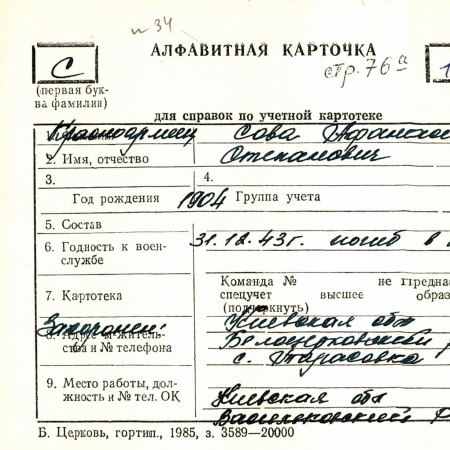 и 34
АЛФАВИТНАЯ КАРТОЧКА
стр. 76а
С
1
(первая бук-
ва фамилии)
для справок по учетной картотеке
Красноармеец Сова Афанасий
2. Имя, отчество Степанович
3. 4.
Год рождения 1904 Группа учета
5. Состав
6. Годность к воен-
службе
31.12.43г. погиб в
7. Картотека
Команда № не Предна
спецучет высшее образ
(подчеркнуть)
Захоронен: Киевская обл
8. Адрес и житель-
ства и № телефона
Белоцерковский р
с. Тарасовка
9. Место работы, дол-
жность и № тел. ОК
Киевская обл
Васильковский р
Б. Церковь, гортип., 1985, з. 3589—20000